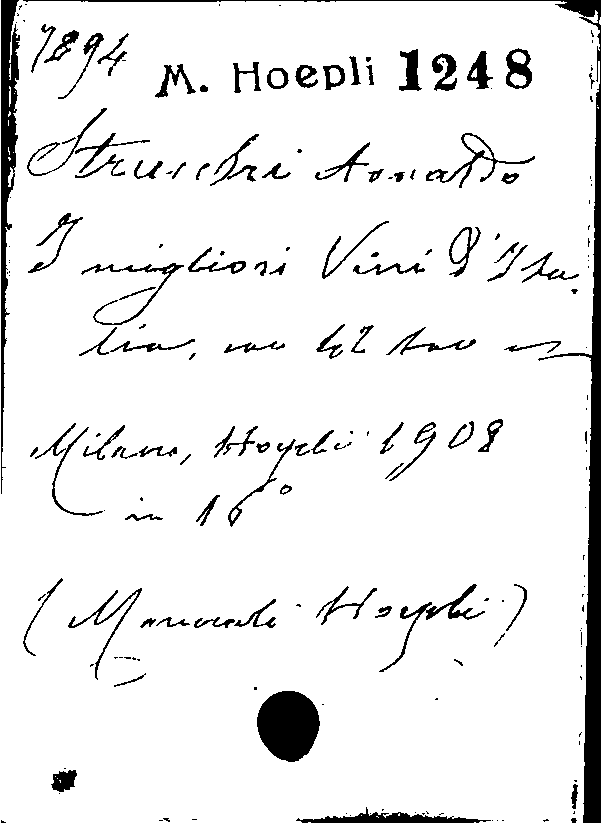 7894 M. Hoepli 1248
Strucchi Arnaldo
I migliori Vini d'Ita-
lia, con 42 tav e
Milano, Hoepli 1908
in 16°
(Manuali Hoepli)